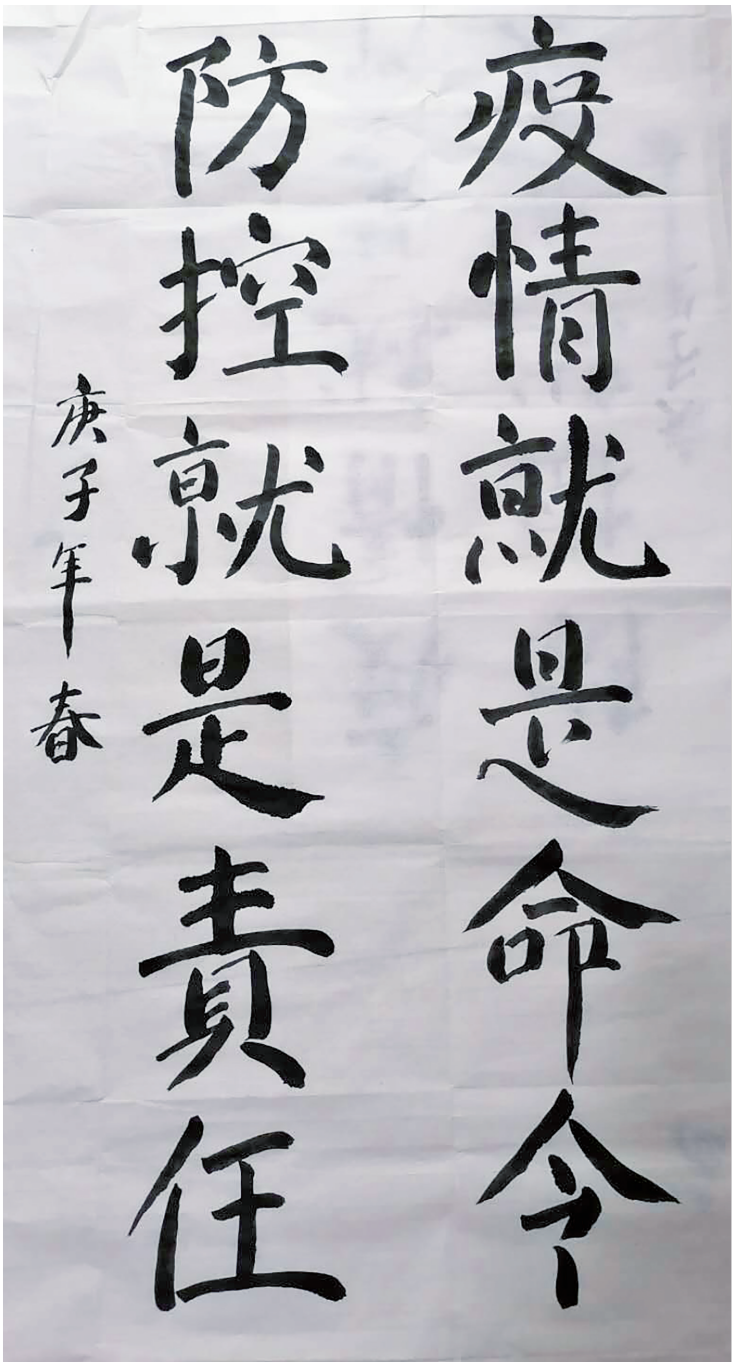 疫情就是命令
防控就是責任
庚子年春